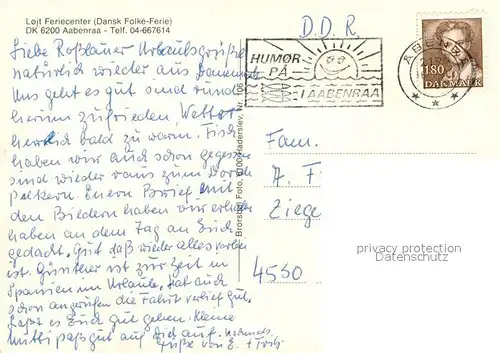 Løjt Feriecenter (Dansk Folke-Ferie)
DK 6200 Aabenraa - Telf. 04-667614
D.D.R.
HUMØR
PÅ
I AABENRAA
ÅBENRÅ
180
DANMARK
Liebe Roßlauer Urlaubsgrüße
natürlich wieder aus Dänemark
Uns geht es gut sind rund-
herum zufrieden, Wetter
herrlich bald zu warm. Fisch
haben wir auch schon gegessen
sind wieder raus zum Dorsch
pilkern. Euern Brief mit
den Bildern haben wir erhalten
haben an dem Tag an Euch
gedacht. Gut daß wieder alles vorbei
ist. Günther ist zur Zeit in
Spanien im Urlaub, hat auch
schon angerufen die Fahrt verlief gut.
Laßt es Euch gut gehen. Kleine
Mutti paßt gut auf Dich auf.
Grüße von E. +
Brorson Foto, 6100 Haderslev, Nr. 106
Fam.
A. F.
Ziege
4530
privacy protection
Datenschutz